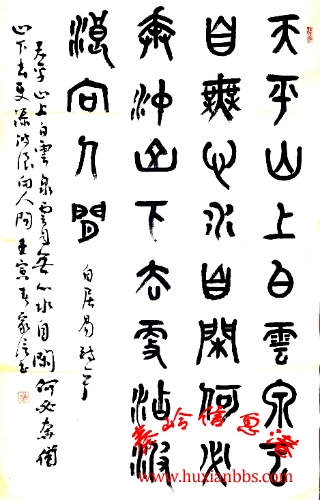 天平山上白雲泉云
自無心水自閑何必
奔沖山下去更添波
浪向人間
白居易詩
天平山上白雲泉雲自無心水自閑何必奔衝
山下去更添波浪向人間
秦岭信息港
www.huxianbbs.com